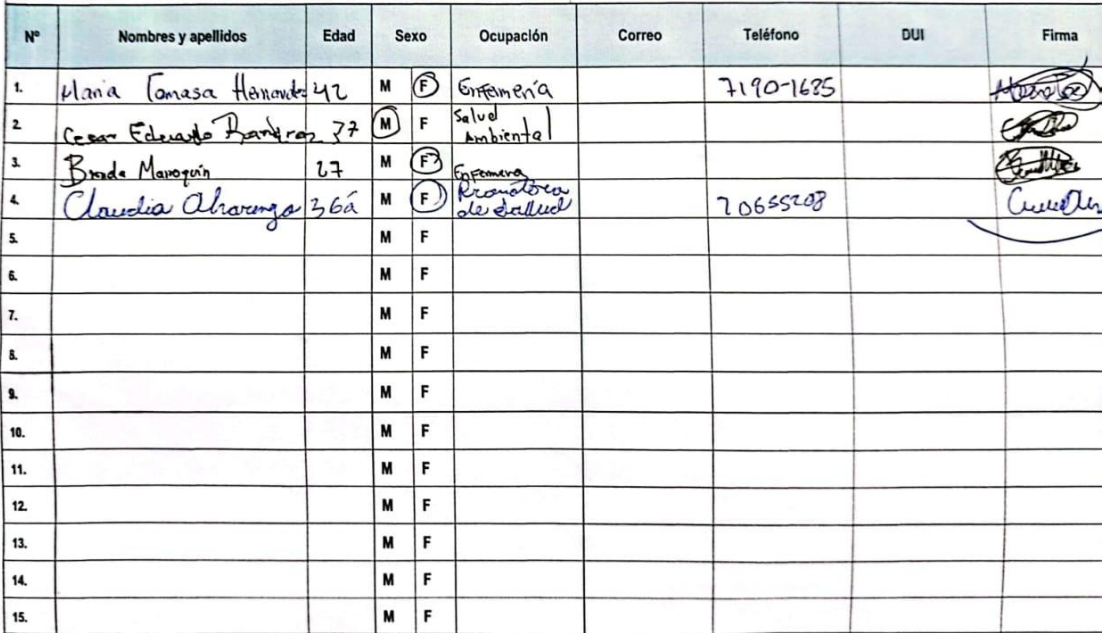 Nº Nombres y apellidos Edad Sexo Ocupación Correo Teléfono DUI Firma
1. Maria Tomasa Hernandez 42 M F Enfermería 7190-1685
2 Cesar Eduardo 37 M F Salud Ambiental
3. Brenda Marroquín 27 M F Enfermera
4. Claudia Alvarenga 36á M F Promotora de salud 70655208
5. M F
6. M F
7. M F
8. M F
9. M F
10. M F
11. M F
12. M F
13. M F
14. M F
15. M F